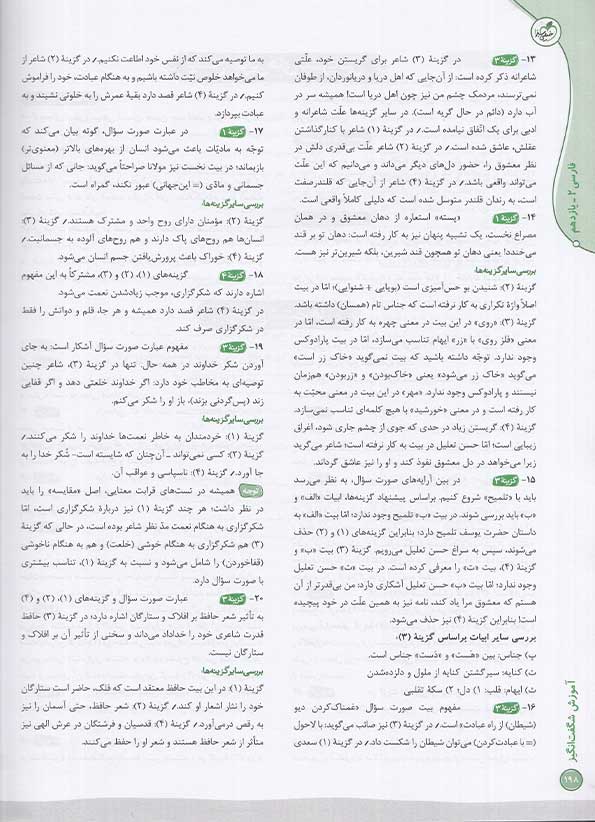 ۱۳- گزینهٔ ۳ در گزینهٔ (۳) شاعر برای گریستن خود، علّتی
شاعرانه ذکر کرده است: از آن‌جایی که اهل دریا و دریانوردان، از طوفان
نمی‌ترسند، مردمک چشم من نیز چون اهل دریا است! همیشه سر در
آب دارد (دائم در حال گریه است). در سایر گزینه‌ها علّت شاعرانه و
ادبی برای یک اتّفاق نیامده است./ در گزینهٔ (۱) شاعر با کنارگذاشتن
عقلش، عاشق شده است./ در گزینهٔ (۲) شاعر علّت بی‌قدری دلش در
نظر معشوق را، حضور دل‌های دیگر می‌داند و می‌دانیم که این علّت
می‌تواند واقعی باشد./ در گزینهٔ (۴) شاعر از آن‌جایی که قلندرصفت
است، به رندان قلندر متوسل شده است که دلیلی کاملاً واقعی است.
۱۴- گزینهٔ ۱ «پسته» استعاره از دهان معشوق و در همان
مصراع نخست، یک تشبیه پنهان نیز به کار رفته است: دهان تو بر قند
می‌خندد! یعنی دهان تو همچون قند شیرین، بلکه شیرین‌تر نیز هست.
بررسی سایر گزینه‌ها:
گزینهٔ (۲): شنیدن بو حس‌آمیزی است (بویایی + شنوایی)؛ امّا در بیت
اصلاً واژهٔ تکراری به کار نرفته است که جناس تام (همسان) داشته باشد.
گزینهٔ (۳): «روی» در این بیت در معنی چهره به کار رفته است، امّا در
معنی «فلز روی» با «زر» ایهام تناسب می‌سازد، امّا در بیت پارادوکس
وجود ندارد. توجّه داشته باشید که بیت نمی‌گوید «خاک زر است»
می‌گوید «خاک زر می‌شود» یعنی «خاک‌بودن» و «زربودن» هم‌زمان
نیستند و پارادوکس وجود ندارد. «مهر» در این بیت در معنی محبّت به
کار رفته است و در معنی «خورشید» با هیچ کلمه‌ای تناسب نمی‌سازد.
گزینهٔ (۴): گریستن زیاد در حدی که جوی از چشم جاری شود، اغراق
زیبایی است؛ امّا حسن تعلیل در بیت به کار نرفته است؛ شاعر می‌گرید
زیرا می‌خواهد در دل معشوق نفوذ کند و او را نیز عاشق گرداند.
۱۵- گزینهٔ ۳ در بین آرایه‌های صورت سؤال، به نظر می‌رسد
باید با «تلمیح» شروع کنیم. براساس پیشنهاد گزینه‌ها، ابیات «الف» و
«ب» باید بررسی شوند. در بیت «ب» تلمیح وجود ندارد؛ امّا بیت «الف» به
داستان حضرت یوسف تلمیح دارد؛ بنابراین گزینه‌های (۱) و (۲) حذف
می‌شوند، سپس به سراغ حسن تعلیل می‌رویم. گزینهٔ (۳) بیت «ب» و
گزینهٔ (۴)، بیت «ت» را معرفی کرده است. در بیت «ت» حسن تعلیل
وجود ندارد؛ امّا بیت «ب» حسن تعلیل آشکاری دارد؛ من بی‌قدرتر از آن
هستم که معشوق مرا یاد کند، نامه نیز به همین علّت در خود پیچیده
است! بنابراین گزینهٔ (۴) نیز حذف می‌شود.
بررسی سایر ابیات براساس گزینهٔ (۳):
پ) جناس: بین «هَست» و «دَست» جناس است.
ت) کنایه: سیر گشتن کنایه از ملول و دلزده‌شدن
ث) ایهام: قلب: ۱) دل؛ ۲) سکهٔ تقلبی
۱۶- گزینهٔ ۳ مفهوم بیت صورت سؤال «غمناک‌کردن دیو
(شیطان) از راه عبادت» است./ در گزینهٔ (۳) نیز صائب می‌گوید: با لاحول
(= با عبادت‌کردن) می‌توان شیطان را شکست داد./ در گزینهٔ (۱) سعدی
به ما توصیه می‌کند که از نفس خود اطاعت نکنیم./ در گزینهٔ (۲) شاعر از
ما می‌خواهد خلوص نیّت داشته باشیم و به هنگام عبادت، خود را فراموش
کنیم./ در گزینهٔ (۴) شاعر قصد دارد بقیهٔ عمرش را به خلوتی نشیند و به
عبادت بپردازد.
۱۷- گزینهٔ ۱ در عبارت صورت سؤال، گوته بیان می‌کند که
توجّه به مادیّات باعث می‌شود انسان از بهره‌های بالاتر (معنوی‌تر)
بازبماند؛ در بیت نخست نیز مولانا صراحتاً می‌گوید: جانی که از مسائل
جسمانی و مادّی (= این‌جهانی) عبور نکند، گمراه است.
بررسی سایر گزینه‌ها:
گزینهٔ (۲): مؤمنان دارای روح واحد و مشترک هستند./ گزینهٔ (۳):
انسان‌ها هم روح‌های پاک دارند و هم روح‌های آلوده به جسمانیت./
گزینهٔ (۴): خوراک باعث پرورش‌یافتن جسم انسان می‌شود.
۱۸- گزینهٔ ۴ گزینه‌های (۱)، (۲) و (۳)، مشترکاً به این مفهوم
اشاره دارند که شکرگزاری، موجب زیادشدن نعمت می‌شود.
در گزینهٔ (۴) شاعر قصد دارد همیشه و هر جا، قلم و دواتش را فقط
در شکرگزاری صرف کند.
۱۹- گزینهٔ ۳ مفهوم عبارت صورت سؤال آشکار است: به جای
آوردن شکر خداوند در همه حال. تنها در گزینهٔ (۳)، شاعر چنین
توصیه‌ای به مخاطب خود دارد: اگر خداوند خلعتی دهد و اگر قفایی
زند (پس‌گردنی بزند)، باز او را شکر می‌کنم.
بررسی سایر گزینه‌ها:
گزینهٔ (۱): خردمندان به خاطر نعمت‌ها خداوند را شکر می‌کنند./
گزینهٔ (۲): کسی نمی‌تواند - آن‌چنان که شایسته است- شُکر خدا را به
جا آورد./ گزینهٔ (۴): ناسپاسی و عواقب آن.
توجّه همیشه در تست‌های قرابت معنایی، اصل «مقایسه» را باید
در نظر داشت؛ هر چند گزینهٔ (۱) نیز دربارهٔ شکرگزاری است، امّا
شکرگزاری به هنگام نعمت مدّ نظر شاعر بوده است، در حالی که گزینهٔ
(۳) هم شکرگزاری به هنگام خوشی (خلعت) و هم به هنگام ناخوشی
(قفاخوردن) را شامل می‌شود و نسبت به گزینهٔ (۱)، تناسب بیشتری
با صورت سؤال دارد.
۲۰- گزینهٔ ۳ عبارت صورت سؤال و گزینه‌های (۱)، (۲) و (۴)
به تأثیر شعر حافظ بر افلاک و ستارگان اشاره دارد؛ در گزینهٔ (۳) حافظ
قدرت شاعری خود را خداداد می‌داند و سخنی از تأثیر آن بر افلاک و
ستارگان نیست.
بررسی سایر گزینه‌ها:
گزینهٔ (۱): در این بیت حافظ معتقد است که فلک، حاضر است ستارگان
خود را نثار اشعار او کند./ گزینهٔ (۲): شعر حافظ، حتی آسمان را نیز
به رقص درمی‌آورد./ گزینهٔ (۴): قدسیان و فرشتگان در عرش الهی نیز
متأثر از شعر حافظ هستند و شعر او را حفظ می‌کنند.
فارسی ۲ - یازدهم
آموزش شگفت‌انگیز
۱۹۸